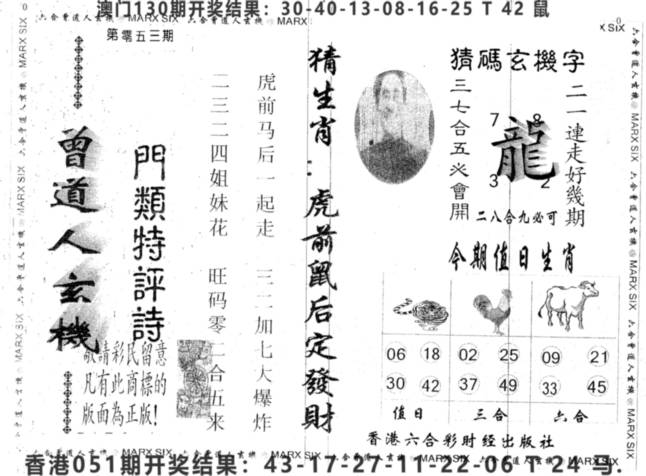 澳门130期开奖结果：30-40-13-08-16-25 T 42 鼠
六合曾道人玄機 MARX SIX 六合曾道人玄機 MARX SIX 六合曾道人玄機 MARX
第零五三期
曾道人玄機
門類特評詩
敬請彩民留意
凡有此商標的
版面為正版!
虎前马后一起走 三二加七大爆炸
二三二四姐妹花 旺码零二合五来
猜生肖：虎前鼠后定發財
猜碼玄機字
二一連走好幾期
三七合五必會開
7 8
龍
3 2
二八合九必可
今期值日生肖
06 18 02 25 09 21
30 42 37 49 33 45
值日 三合 六合
香港六合彩财经出版社
香港051期开奖结果：43-17-27-11-22-06 T 21 马